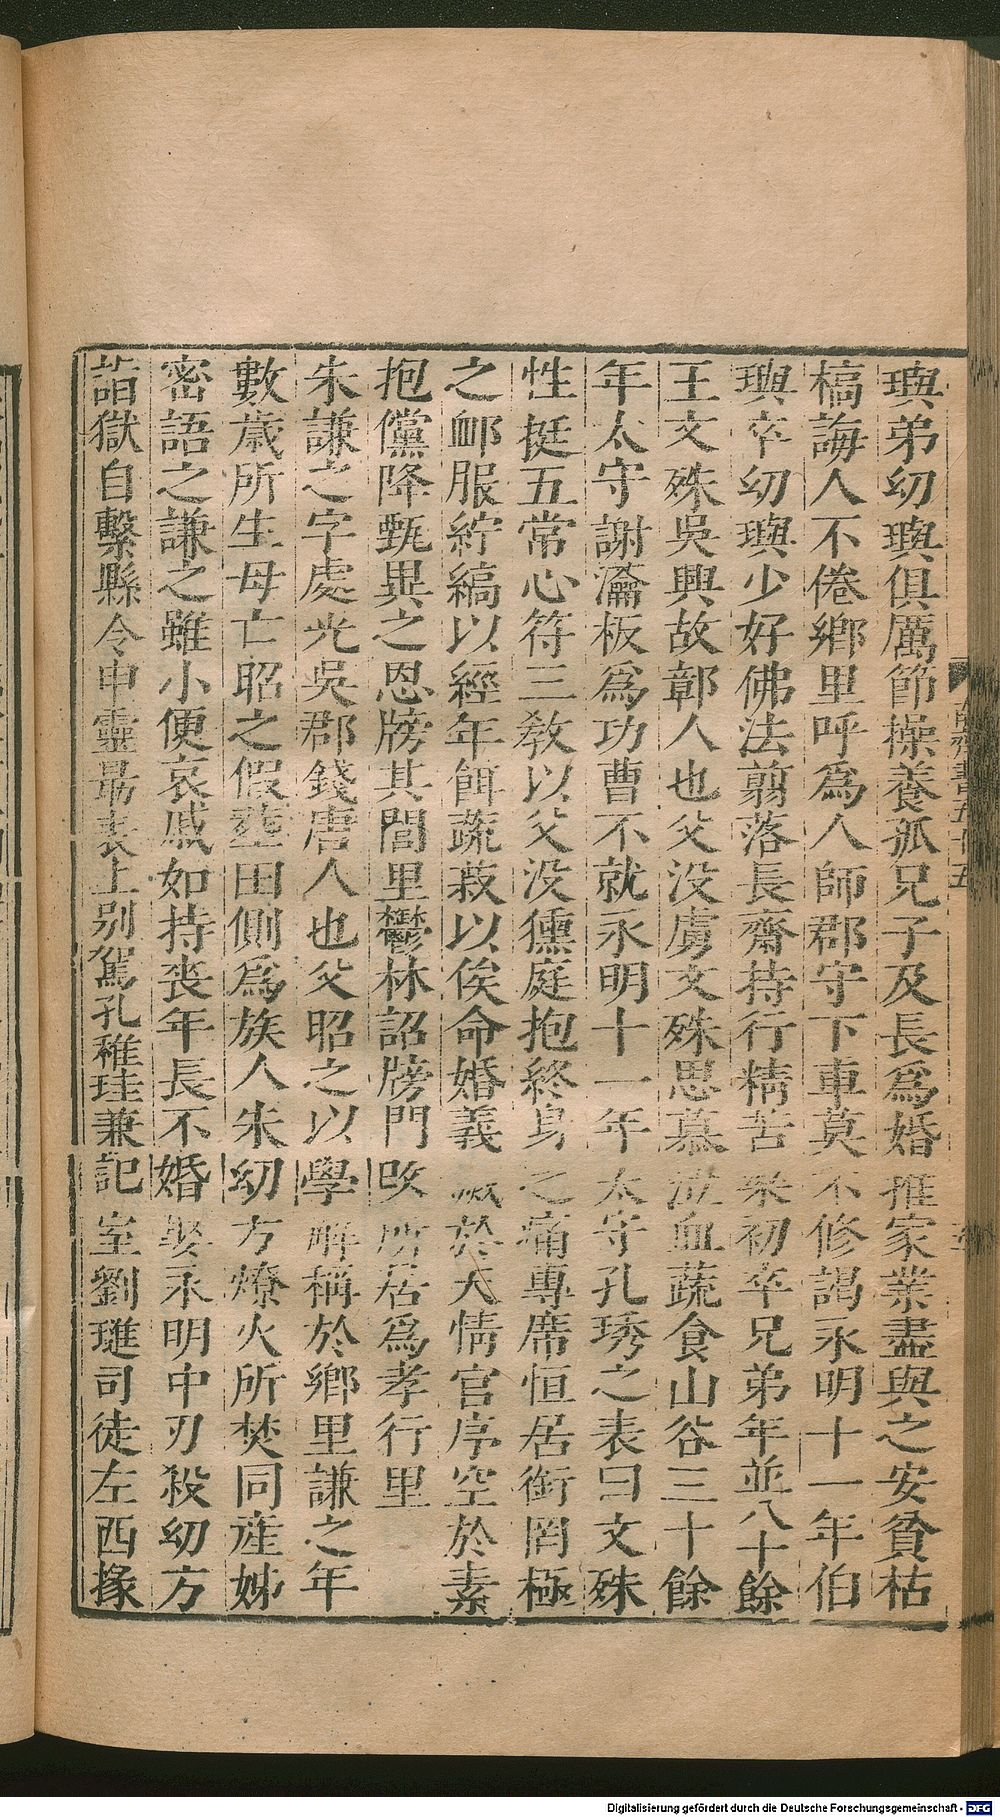 璵弟幼璵俱厲節操養孤兄子及長爲婚推家業盡與之安貧枯
槁誨人不倦鄉里呼爲人師郡守下車莫不修謁永明十一年伯
璵卒幼璵少好佛法翦落長齋持行精苦梁初卒兄弟年並八十餘
王文殊吳興故鄣人也父没虜文殊思慕泣血蔬食山谷三十餘
年太守謝瀹板爲功曹不就永明十一年太守孔琇之表曰文殊
性挺五常心符三教以父没獯庭抱終身之痛專席恒居銜罔極
之䘏服紵縞以經年餌蔬菽以俟命婚義滅於天情官序空於素
抱儻降甄異之恩牓其閭里鬱林詔牓門改所居爲孝行里
朱謙之字處光吳郡錢唐人也父昭之以學解稱於鄉里謙之年
數歲所生母亡昭之假葬田側爲族人朱幼方燎火所焚同産姊
密語之謙之雖小便哀戚如持喪年長不婚娶永明中刃殺幼方
詣獄自繫縣令申靈勗表上别駕孔稚珪兼記室劉璡司徒左西掾
Digitalisierung gefördert durch die Deutsche Forschungsgemeinschaft - DFG